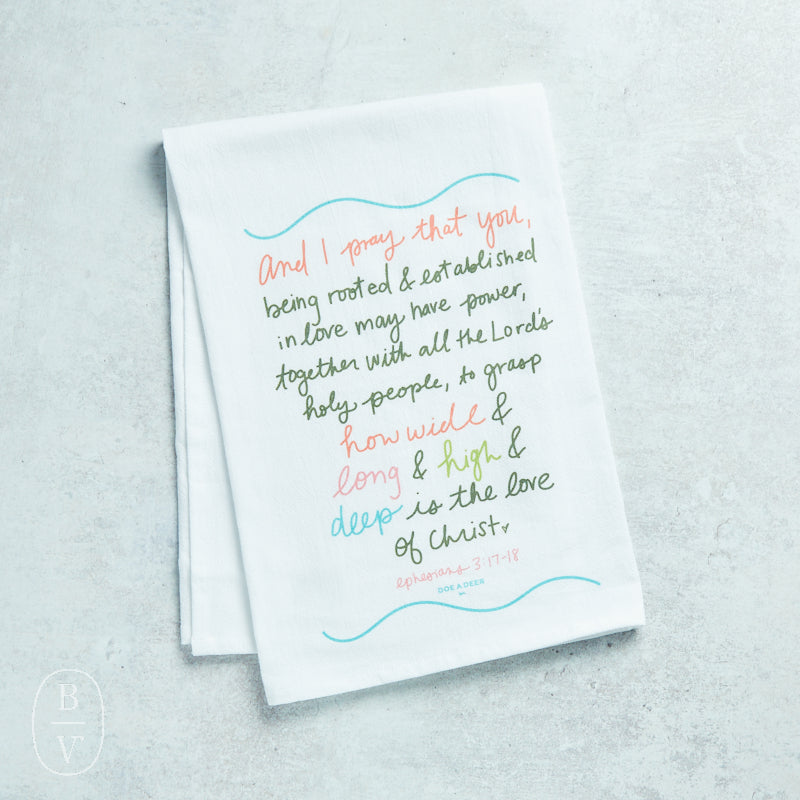 And I pray that you,
being rooted & established
in love may have power,
together with all the Lord's
holy people, to grasp
how wide &
long & high &
deep is the love
of Christ
ephesians 3:17-18
DOE A DEER
B
V